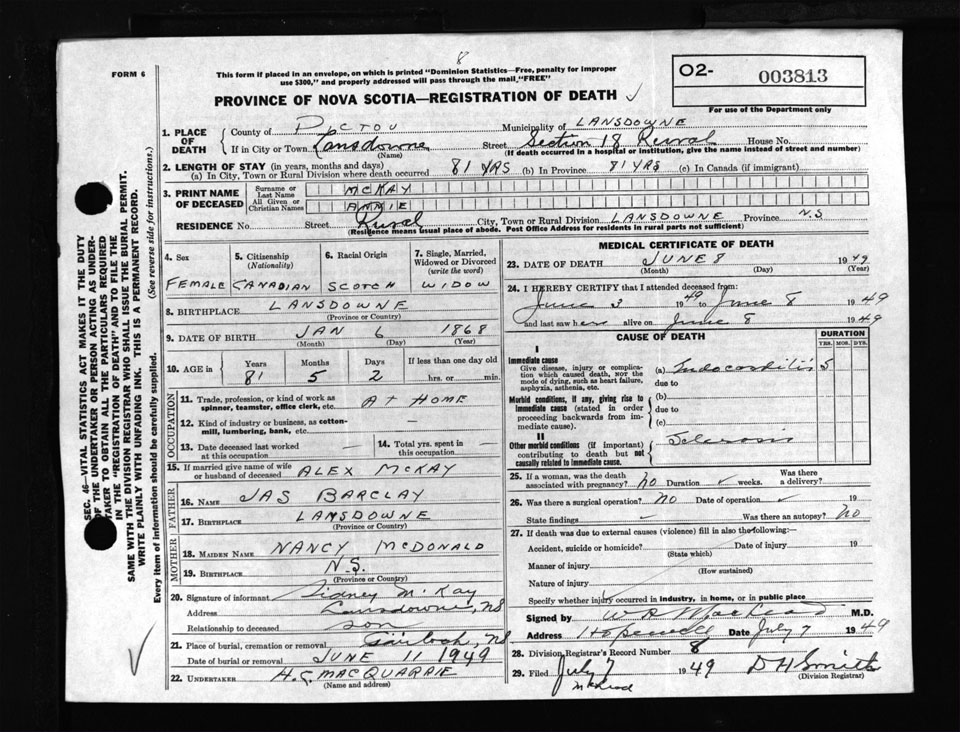 8
FORM 6
This form if placed in an envelope, on which is printed "Dominion Statistics—Free, penalty for improper
use $300," and properly addressed will pass through the mail, "FREE"
O2- 003813
For use of the Department only
PROVINCE OF NOVA SCOTIA—REGISTRATION OF DEATH ✓
1. PLACE OF DEATH
County of PICTOU Municipality of LANSDOWNE
If in City or Town Lansdowne (Name) Street Section 18 Rural House No.
(If death occurred in a hospital or institution, give the name instead of street and number)
2. LENGTH OF STAY (in years, months and days)
(a) In City, Town or Rural Division where death occurred 81 YRS (b) In Province 81 YRS (c) In Canada (if immigrant)
3. PRINT NAME OF DECEASED
Surname or Last Name McKAY
All Given or Christian Names ANNIE
RESIDENCE No. Street Rural City, Town or Rural Division LANSDOWNE Province N.S
(Residence means usual place of abode. Post Office Address for residents in rural parts not sufficient)
4. Sex
FEMALE
5. Citizenship (Nationality)
CANADIAN
6. Racial Origin
SCOTCH
7. Single, Married, Widowed or Divorced (write the word)
WIDOW
8. BIRTHPLACE LANSDOWNE
(Province or Country)
9. DATE OF BIRTH JAN 6 1868
(Month) (Day) (Year)
10. AGE in Years Months Days If less than one day old
81 5 2 hrs. or min.
OCCUPATION
11. Trade, profession, or kind of work as spinner, teamster, office clerk, etc. AT HOME
12. Kind of industry or business, as cotton-mill, lumbering, bank, etc. —
13. Date deceased last worked at this occupation —
14. Total yrs. spent in this occupation —
15. If married give name of wife or husband of deceased ALEX McKAY
FATHER
16. NAME JAS BARCLAY
17. BIRTHPLACE LANSDOWNE
(Province or Country)
MOTHER
18. MAIDEN NAME NANCY McDONALD
19. BIRTHPLACE N.S.
(Province or Country)
20. Signature of informant Sidney McKay
Address Lansdowne, NS
Relationship to deceased son
21. Place of burial, cremation or removal Gairloch, NS
Date of burial or removal JUNE 11 1949
22. UNDERTAKER H.G. MACQUARRIE
(Name and address)
MEDICAL CERTIFICATE OF DEATH
23. DATE OF DEATH JUNE 8 1949
(Month) (Day) (Year)
24. I HEREBY CERTIFY that I attended deceased from:
June 3 1949 to June 8 1949
and last saw her alive on June 8 1949
CAUSE OF DEATH
DURATION
YRS. MOS. DYS.
I
Immediate cause
Give disease, injury or complication which caused death, NOT the mode of dying, such as heart failure, asphyxia, asthenia, etc.
(a) Endocarditis 5
due to
Morbid conditions, if any, giving rise to immediate cause (stated in order proceeding backwards from immediate cause).
(b)
due to
(c)
II
Other morbid conditions (if important) contributing to death but not causally related to immediate cause.
Sclerosis
25. If a woman, was the death associated with pregnancy? no Duration ✓ weeks. Was there a delivery?
26. Was there a surgical operation? no Date of operation ✓ 19
State findings ✓ Was there an autopsy? no
27. If death was due to external causes (violence) fill in also the following:
Accident, suicide or homicide? Date of injury 19
(State which)
Manner of injury
(How sustained)
Nature of injury
Specify whether injury occurred in industry, in home, or in public place
Signed by W R MacLeod M.D.
Address Hopewell Date July 7 1949
28. Division Registrar's Record Number 8
29. Filed July 7 1949 D H Smith
(Division Registrar)
SEC. 46—VITAL STATISTICS ACT MAKES IT THE DUTY
OF THE UNDERTAKER OR PERSON ACTING AS UNDER-
TAKER TO OBTAIN ALL THE PARTICULARS REQUIRED
IN THE "REGISTRATION OF DEATH" AND TO FILE THE
SAME WITH THE DIVISION REGISTRAR WHO SHALL ISSUE THE BURIAL PERMIT.
WRITE PLAINLY WITH UNFADING INK. THIS IS A PERMANENT RECORD.
Every item of information should be carefully supplied. (See reverse side for instructions.)
✓